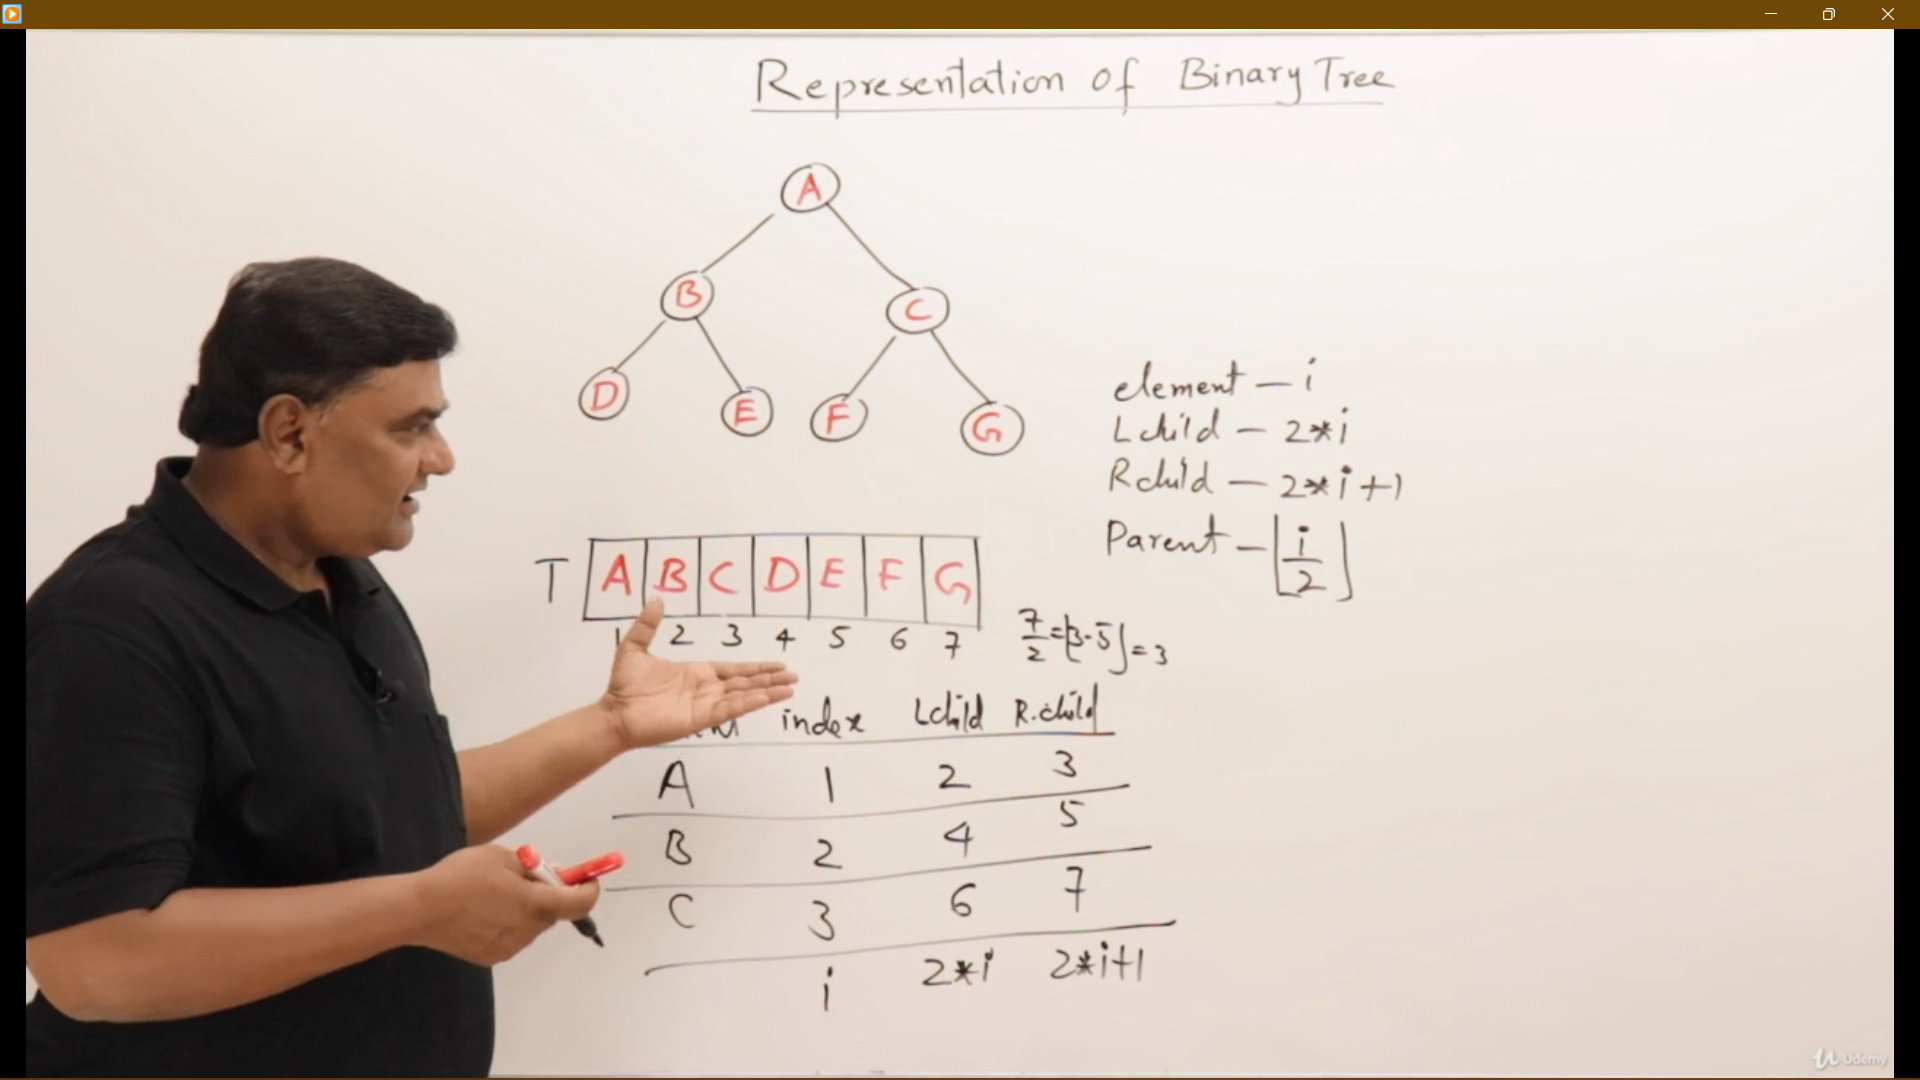 Representation of Binary Tree
A
B
C
D
E
F
G
element — i
Lchild — 2*i
Rchild — 2*i+1
Parent — ⌊i/2⌋
T A B C D E F G
1 2 3 4 5 6 7
7/2 = ⌊3.5⌋ = 3
index Lchild R.child
A 1 2 3
B 2 4 5
C 3 6 7
i 2*i 2*i+1
Udemy